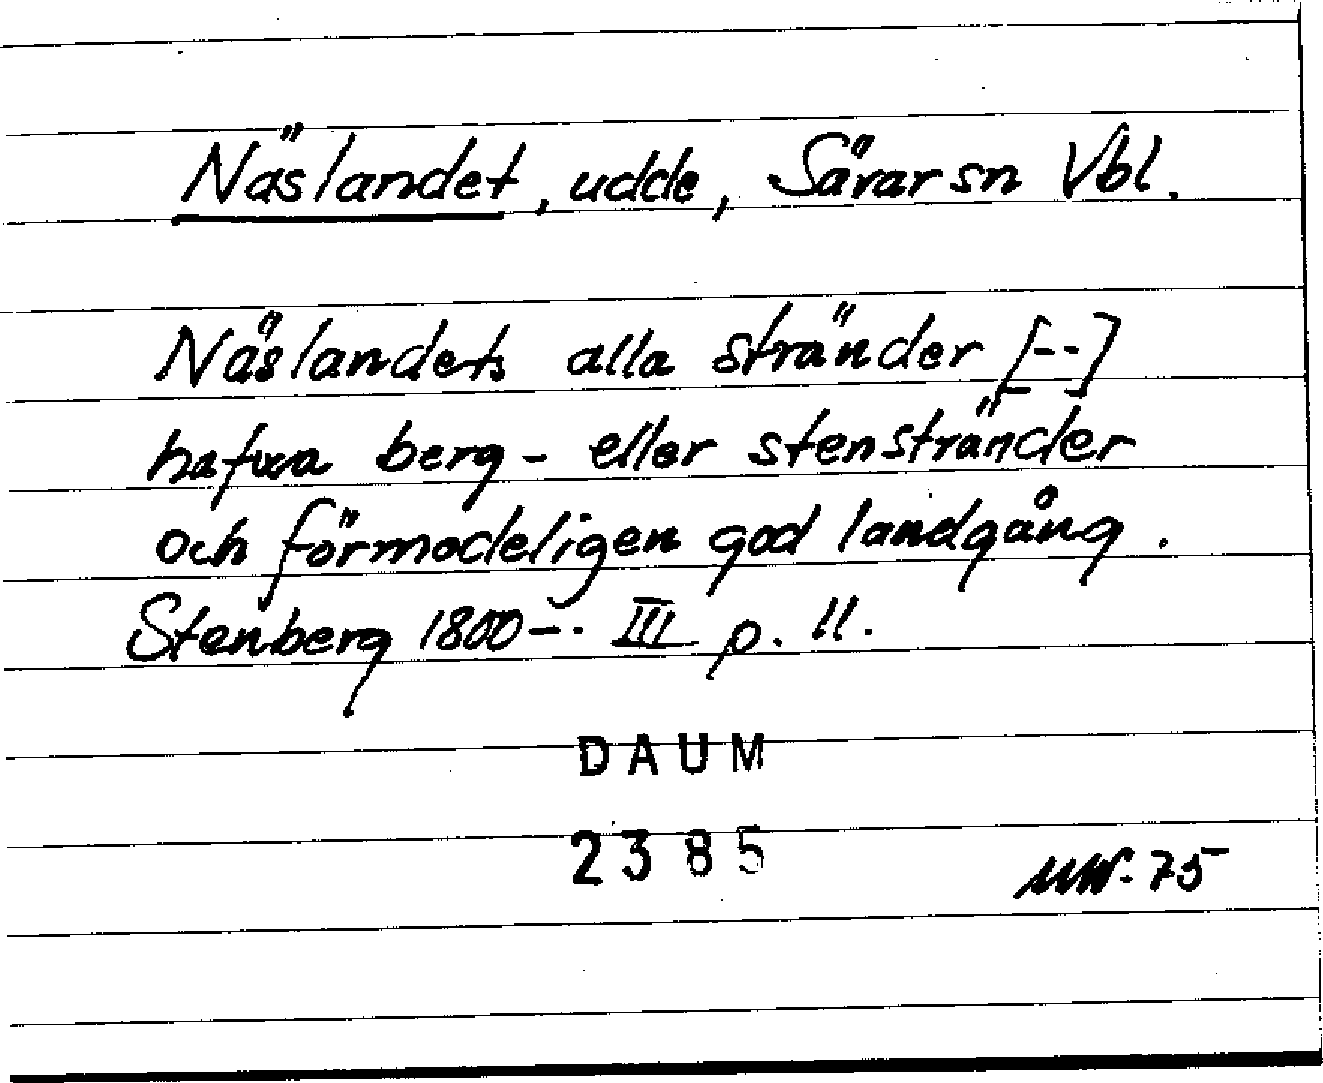 Näslandet, udde, Sävar sn Vbl.
Näslandets alla stränder [--]
hafwa berg- eller stenstränder
och förmodeligen god landgång.
Stenberg 1800-. III p. 11.
DAUM
2385
-75